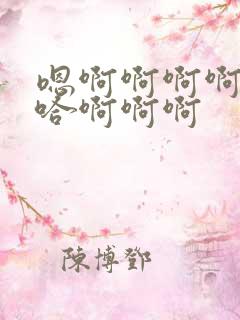 嗯啊啊啊啊
哈啊啊啊
陳博鄧